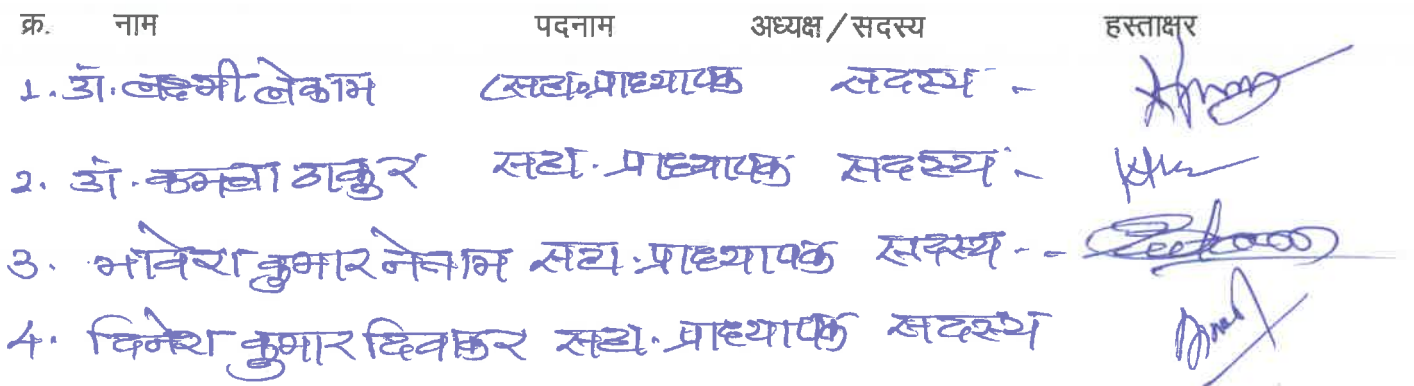 क्र. नाम पदनाम अध्यक्ष/सदस्य हस्ताक्षर
1. डॉ. लक्ष्मी लेकाम (सहा. प्राध्यापक सदस्य -
2. डॉ. कमला ठाकुर सहा. प्राध्यापक सदस्य -
3. भावेश कुमार नेताम सहा. प्राध्यापक सदस्य --
4. दिनेश कुमार दिवाकर सहा. प्राध्यापक सदस्य